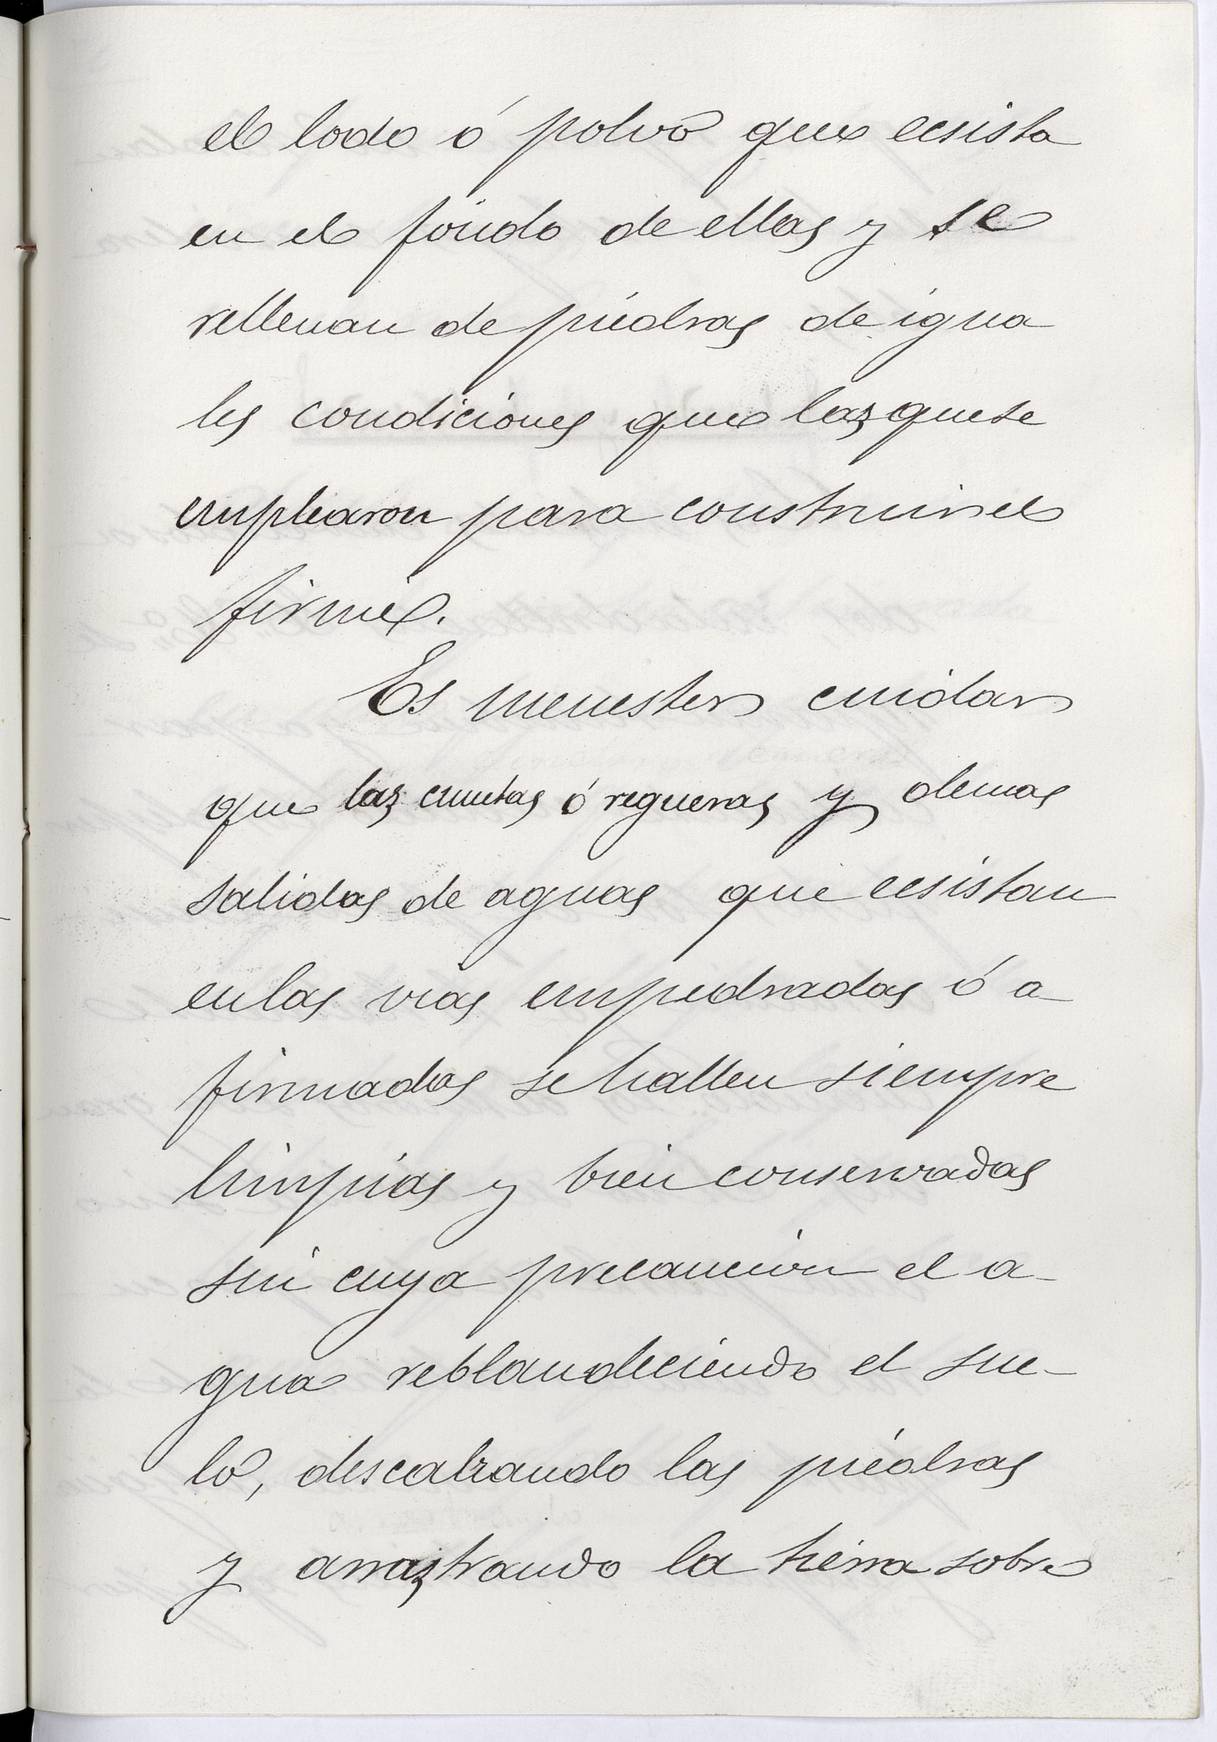 el lodo ó polvo que ecsista
en el fondo de ellas y se
rellenan de piedras de igua
les condiciones que las que se
emplearon para construir el
firme.
Es menester cuidar
que las cunetas ó regueras y demas
salidas de aguas que ecsistan
en las vias empedradas ó a
firmadas se hallen siempre
limpias y bien conservadas
sin cuya precaucion el a-
gua reblandeciendo el sue-
lo, descalzando las piedras
y arrastrando la tierra sobre